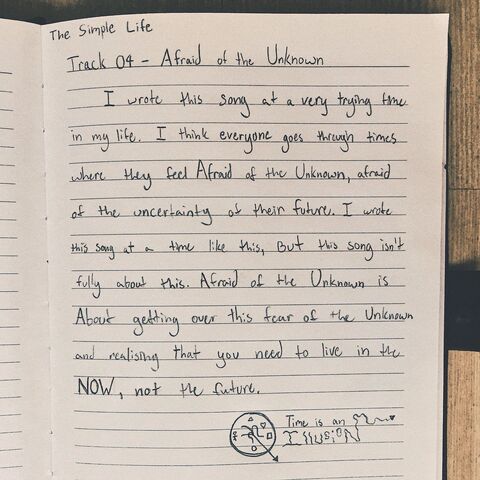 The Simple Life
Track 04 - Afraid of the Unknown
I wrote this song at a very trying time
in my life. I think everyone goes through times
where they feel Afraid of the Unknown, afraid
of the uncertainty of their future. I wrote
this song at a time like this, But this song isn't
fully about this. Afraid of the Unknown is
About getting over this fear of the Unknown
and realising that you need to live in the
NOW, not the future.
Time is an
IllusioN